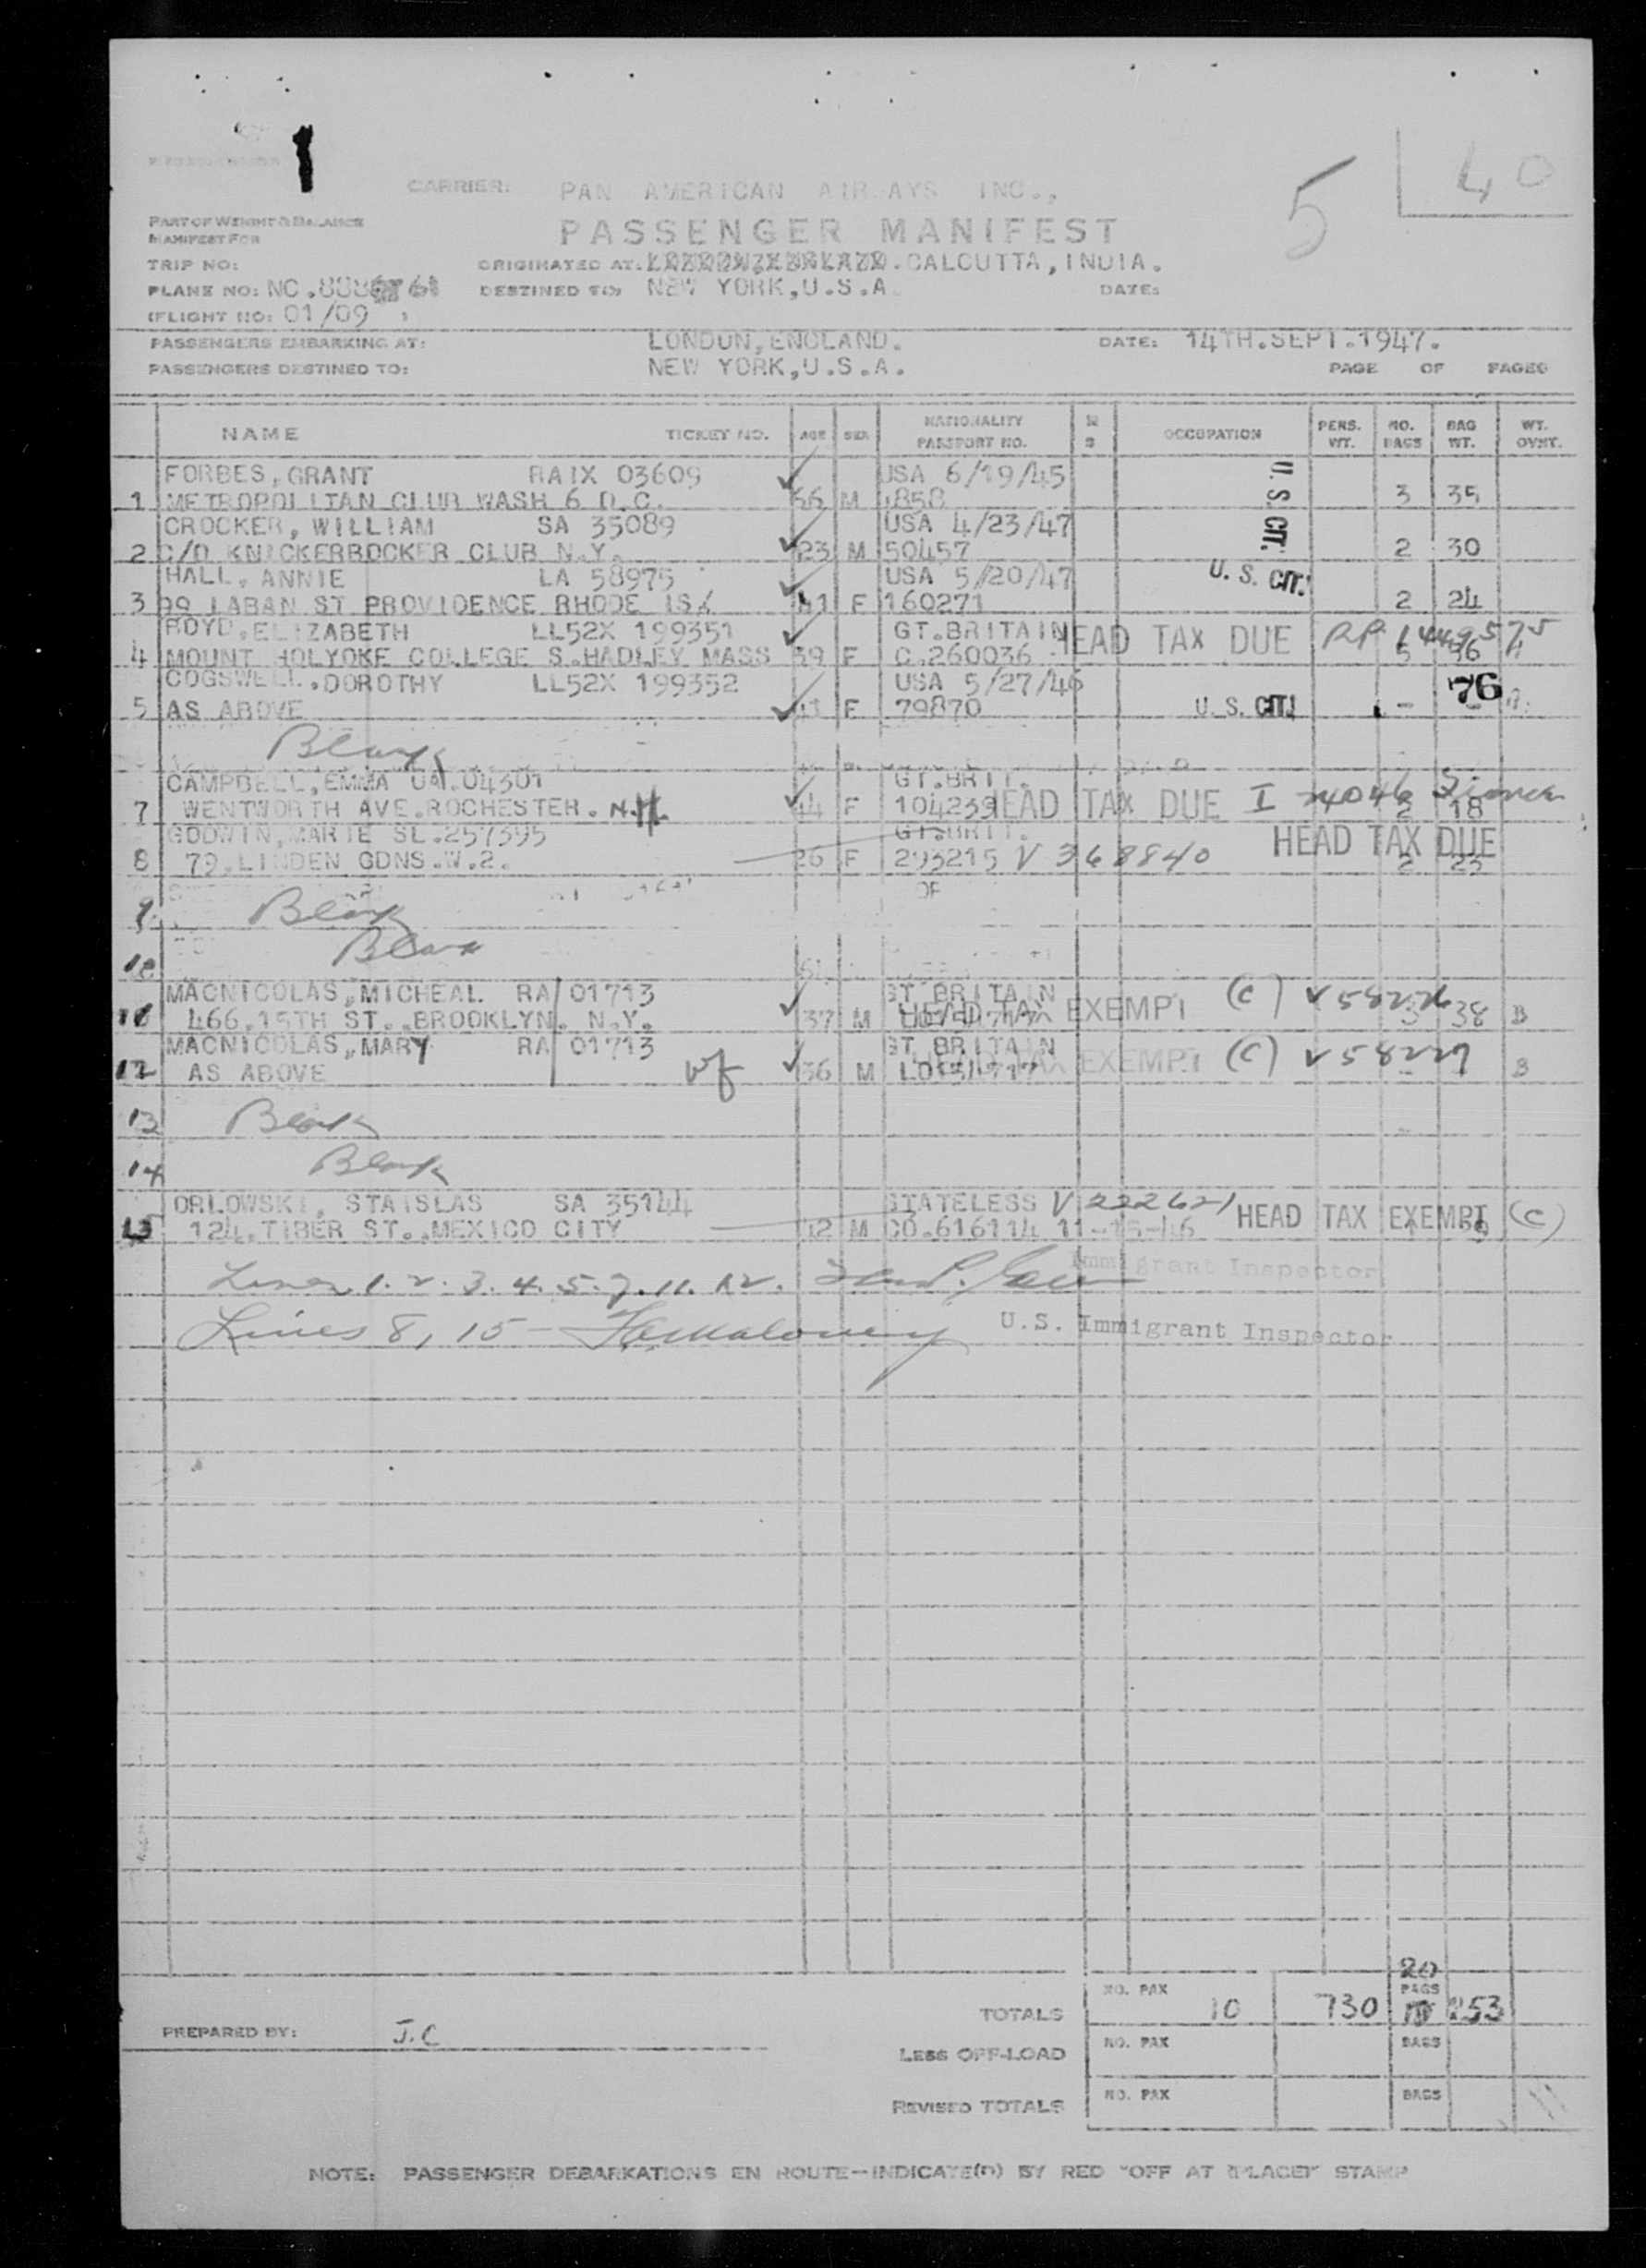 1
5
40
CARRIER: PAN AMERICAN AIRWAYS INC.,
PART OF WEIGHT & BALANCE
MANIFEST FOR
PASSENGER MANIFEST
TRIP NO:
ORIGINATED AT: CALCUTTA, INDIA.
PLANE NO: NC.
DESTINED TO: NEW YORK, U.S.A.
DATE:
(FLIGHT NO: 01/09 )
PASSENGERS EMBARKING AT: LONDON, ENGLAND. DATE: 14TH.SEPT.1947.
PASSENGERS DESTINED TO: NEW YORK, U.S.A. PAGE OF PAGES
NAME TICKET NO. AGE SEX NATIONALITY PASSPORT NO. OCCUPATION PERS. WT. NO. BAGS BAG WT. WT. OVWT.
FORBES, GRANT RAIX 03609 USA 6/19/45 U. S. CIT.
1 METROPOLITAN CLUB WASH 6 D.C. M 3 35
CROCKER, WILLIAM SA 35089 USA 4/23/47
2 C/O KNICKERBOCKER CLUB N.Y. 23 M 50457 2 30
HALL, ANNIE LA 58975 USA 5/20/47 U. S. CIT.
3 99 LABAN ST PROVIDENCE RHODE IS. F 160271 2 24
BOYD, ELIZABETH LL52X 199351 GT.BRITAIN HEAD TAX DUE
4 MOUNT HOLYOKE COLLEGE S.HADLEY MASS 39 F C.260036
COGSWELL, DOROTHY LL52X 199352 USA 5/27/46 76
5 AS ABOVE F 79870 U. S. CIT.
Blank
CAMPBELL, EMMA UA.04301 GT.BRIT.
7 WENTWORTH AVE.ROCHESTER. N.H. 44 F 104239 HEAD TAX DUE 2 18
GODWIN, MARIE SL.257395 GT.BRIT. HEAD TAX DUE
8 79.LINDEN GDNS.W.2. 26 F 293215 V 368840 2 23
9 Blank
10 Blank
MACNICOLAS, MICHEAL RA 01713 GT BRITAIN
466.15TH ST. BROOKLYN. N.Y. 37 M HEAD TAX EXEMPT (C) 38 B
MACNICOLAS, MARY RA 01713 GT BRITAIN
12 AS ABOVE wf 36 M HEAD TAX EXEMPT (C) V 58227 B
13 Blank
14 Blank
ORLOWSKI, STAISLAS SA 35144 STATELESS V 222621 HEAD TAX EXEMPT (C)
15 124.TIBER ST. MEXICO CITY 42 M CO.616114 11-15-46
Lines 1. 2. 3. 4. 5. 7. 11. 12. Immigrant Inspector
Lines 8, 15 - U.S. Immigrant Inspector
20
TOTALS NO. PAX 10 730 BAGS 253
PREPARED BY: J.C
LESS OFF-LOAD NO. PAX BAGS
REVISED TOTALS NO. PAX BAGS
NOTE: PASSENGER DEBARKATIONS EN ROUTE—INDICATE(D) BY RED "OFF AT (PLACE)" STAMP